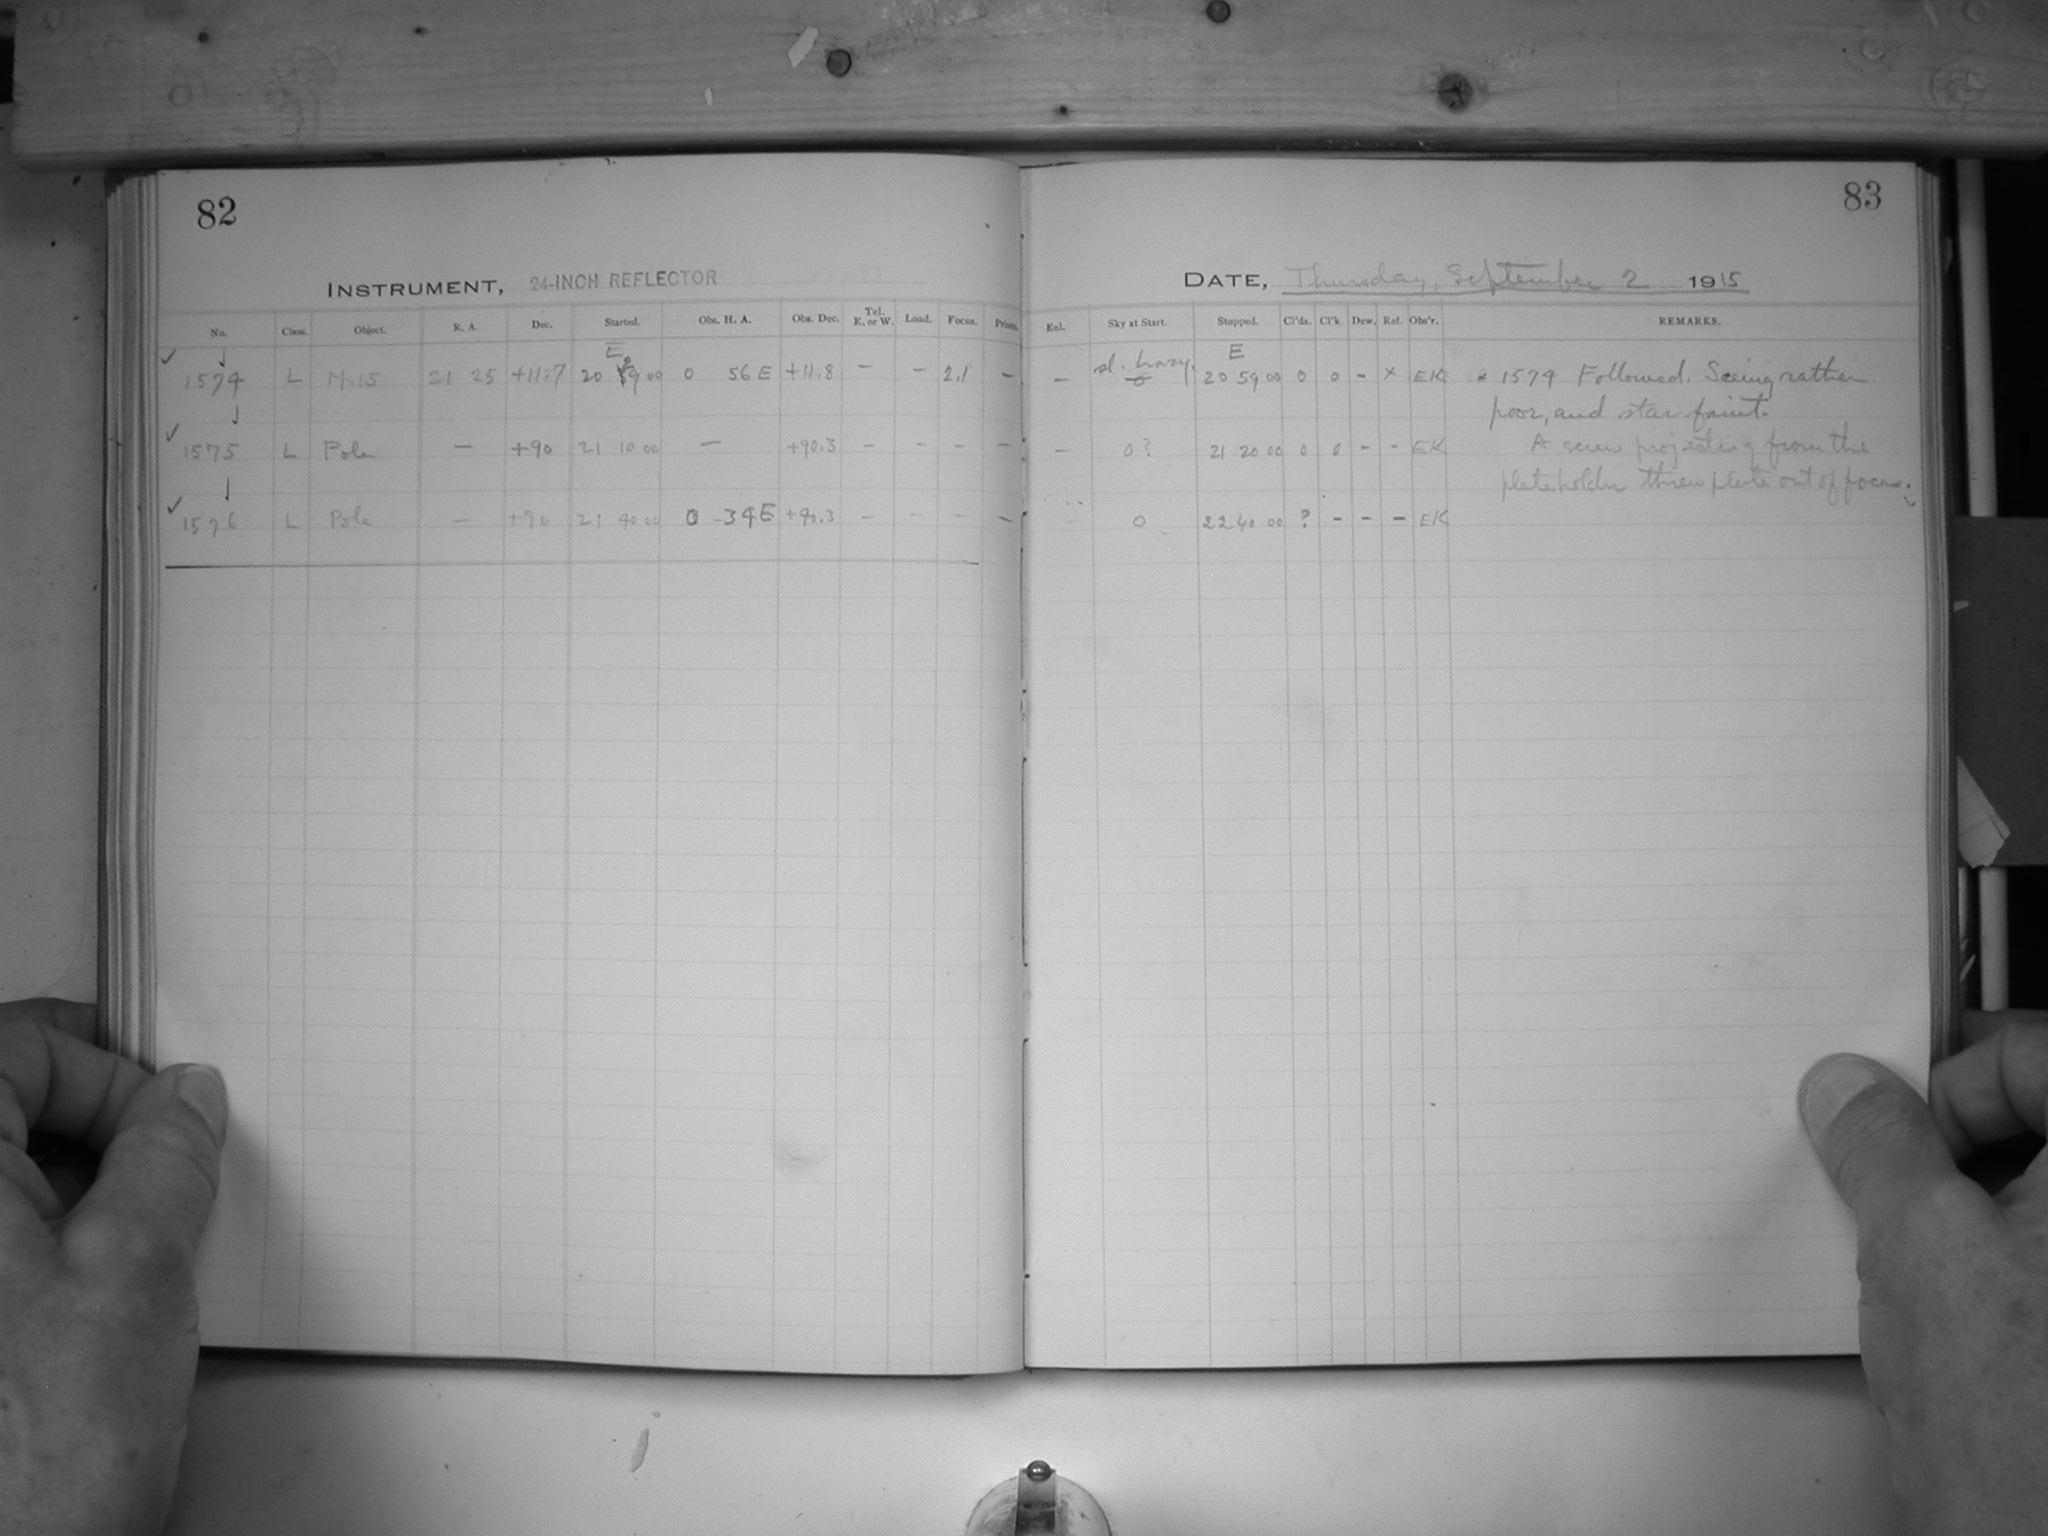 82
INSTRUMENT, 24-INCH REFLECTOR
No. Class. Object. R. A. Dec. Started. Obs. H. A. Obs. Dec. Tel. E. or W. Load. Focus. Prism.
E
1574 L M.15 21 25 +11.7 20 9 00 0 56 E +11.8 — — 2.1 —
1575 L Pole — +90 21 10 00 — +90.3 — — — —
1576 L Pole — +90 21 40 00 0 -34E +90.3 — — — —
83
DATE, Thursday, September 2 1915
Enl. Sky at Start. Stopped. Cl'ds. Cl'k. Dew. Ref. Obs'r. REMARKS.
sl. hazy. E
— 0 20 59 00 0 0 - x EK x 1574 Followed. Seeing rather
poor, and star faint.
— 0? 21 20 00 0 0 - - EK A screw projecting from the
plateholder threw plate out of focus.
0 22 40 00 ? - - - EK